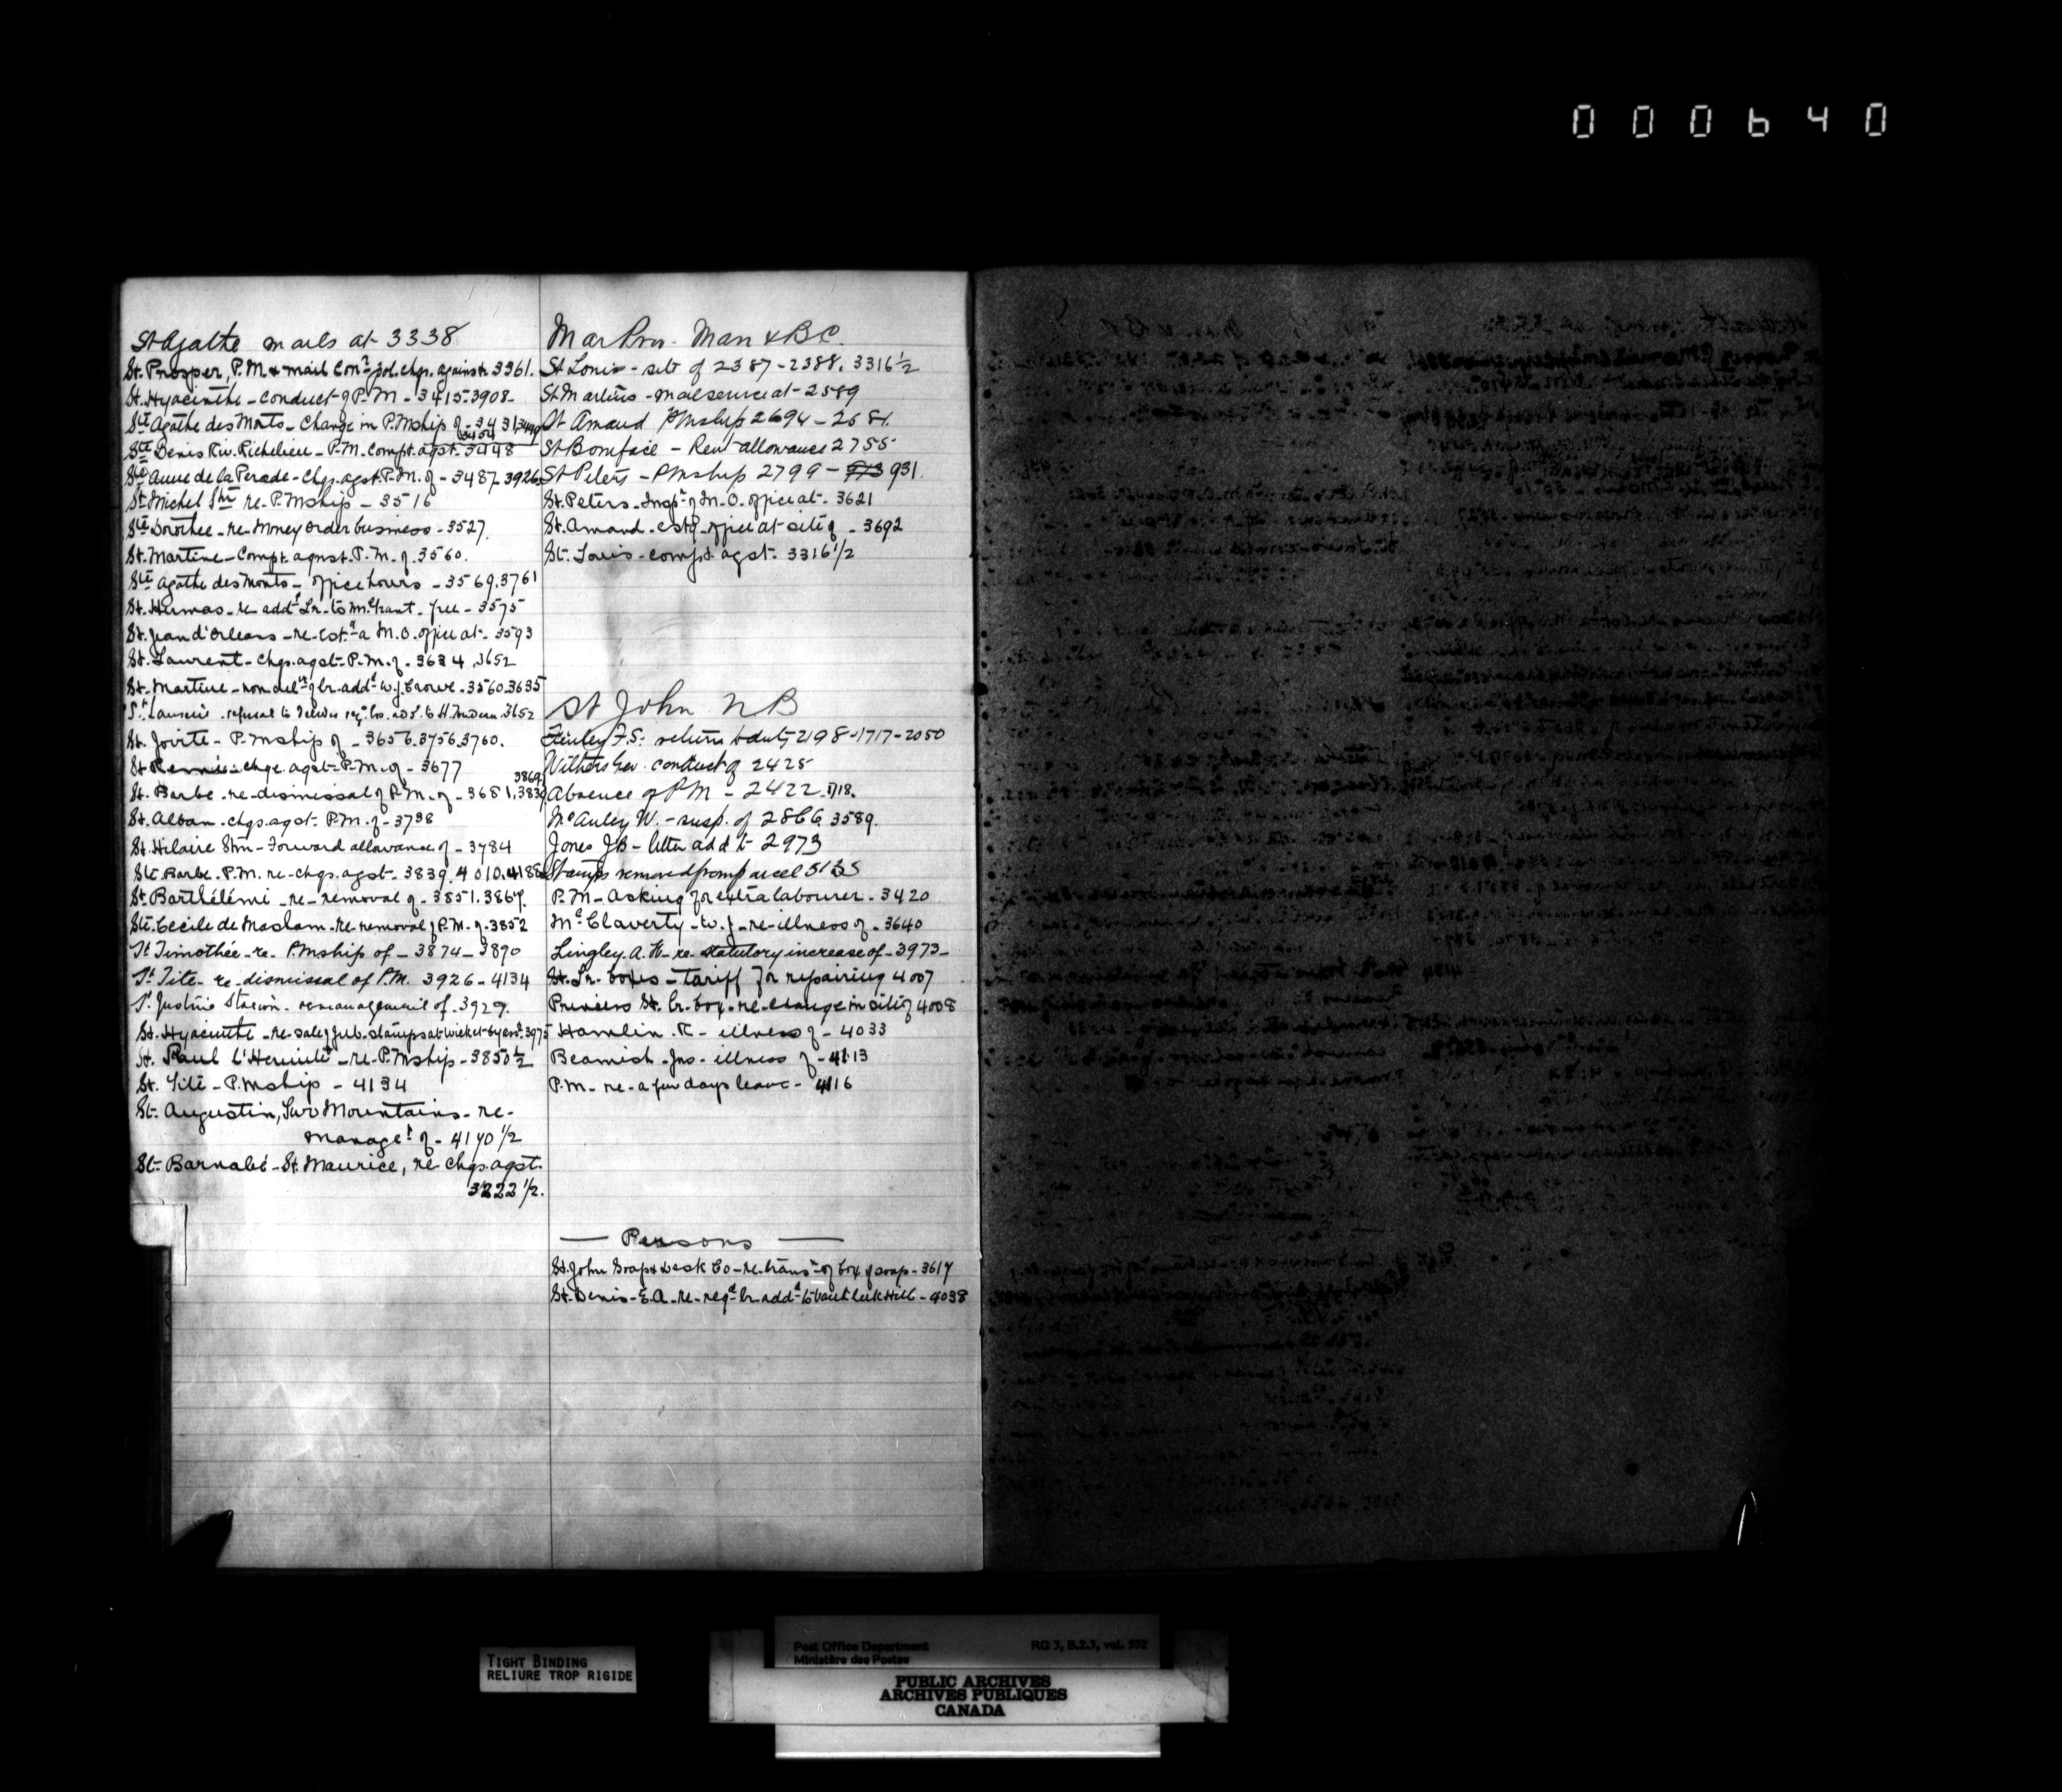 000640
St Agathe mails at 3338
St. Prosper, P.M. & mail Conr. pol. chgs. against. 3361.
St. Hyacinthe - conduct of P.M - 3415-3908-
Ste Agathe des Monts - Change in P.Mship of - 3431, 3449
3454
Ste Denis Riv. Richelieu - P.M. Compt. agst. 3448
Ste Anne de la Perade - Chgs. agst. P.M. of - 3487. 3926
St. Michel Stn re P.Mship - 3516
Ste Dorothee - re Money Order business - 3527.
St. Martine - Compt. agnst. P.M. of. 3560.
Ste Agathe des Monts - office hours - 3569.3761
St. Hermas - re addd Lr. to free - 3575
St. Jean d'Orleans - re Estg a M.O. office at - 3593
St. Laurent - chgs. agst. P.M. of - 3634, 3652
St. Martine - non dely of lr. addd W.J. Crowe - 3560.3635
St. refusal to deliver reg. lrs. add. to H. Trudeau. 3652
St. Jovite - P.Mship of - 3656.3756.3760.
St Remi - chge. agst. P.M. of - 3677
3869
St. Barbe - re dismissal of P.M. of - 3681.3839
St. Alban - chgs. agst. P.M. of - 3738
St. Hilaire Stn - Forward allowance of - 3784
Ste. Barbe - P.M. re chgs. agst. 3839. 4010. 4186
St. Barthélémi - re - removal of - 3851. 3867.
Ste. Cecile de Masham - re removal of P.M. of. 3852
St Timothée - re - P.Mship of - 3874 - 3890
St. Tite - re - dismissal of P.M. 3926 - 4134
St. Justine Station - re management of. 3929.
St. Hyacinthe - re sale of Jub. stamps at wicket by asst. 3975
St. Paul L'Hermite - re - P.Mship - 3850½
St. Tite - P.Mship - 4134
St. Augustin, Two Mountains - re -
managet of - 4170½
St. Barnabé - St. Maurice, re chgs. agst.
3222½.
Mar Prov. Man & B.C.
St Louis - site of 2387-2388. 3316½
St Martins - mail service at - 2589
St Amand P.Mship 2694 - 2681.
St Boniface - Rent allowance 2755
St Peters - P.Mship 2799 - 973 931.
St. Peters - Inspn of M.O. office at - 3621
St. Amand - estg office at site of - 3692
St. Louis - compt. agst. 3316½
St John N B
Finley F.S. return to duty 2198-1717-2050
Withers Geo. conduct of 2425
Absence of PM - 2422.718.
McAuley W. - susp. of 2866. 3589.
Jones JB - letter add to 2973
Stamps removed from parcel 5135
P.M - Asking for extra labourer - 3420
McClaverty - W.J. - re illness of - 3640
Lingley A.W. - re - statutory increase of - 3973 -
St. Lr. boxes - tariff for repairing 4007
Princess St. lr. box - re - change in site of 4008
Hamlin. R - illness of - 4033
Beamish - Jno - illness of - 4113
P.M - re - a few days leave - 4116
Persons
St. John Soap & Desk Co - re transn of box of soap - 3617
St. Denis - E.A. - re - regd lr. addd to Vankleek Hill - 4038
TIGHT BINDING
RELIURE TROP RIGIDE
Post Office Department RG 3, B.2.3, vol. 552
Ministère des Postes
PUBLIC ARCHIVES
ARCHIVES PUBLIQUES
CANADA